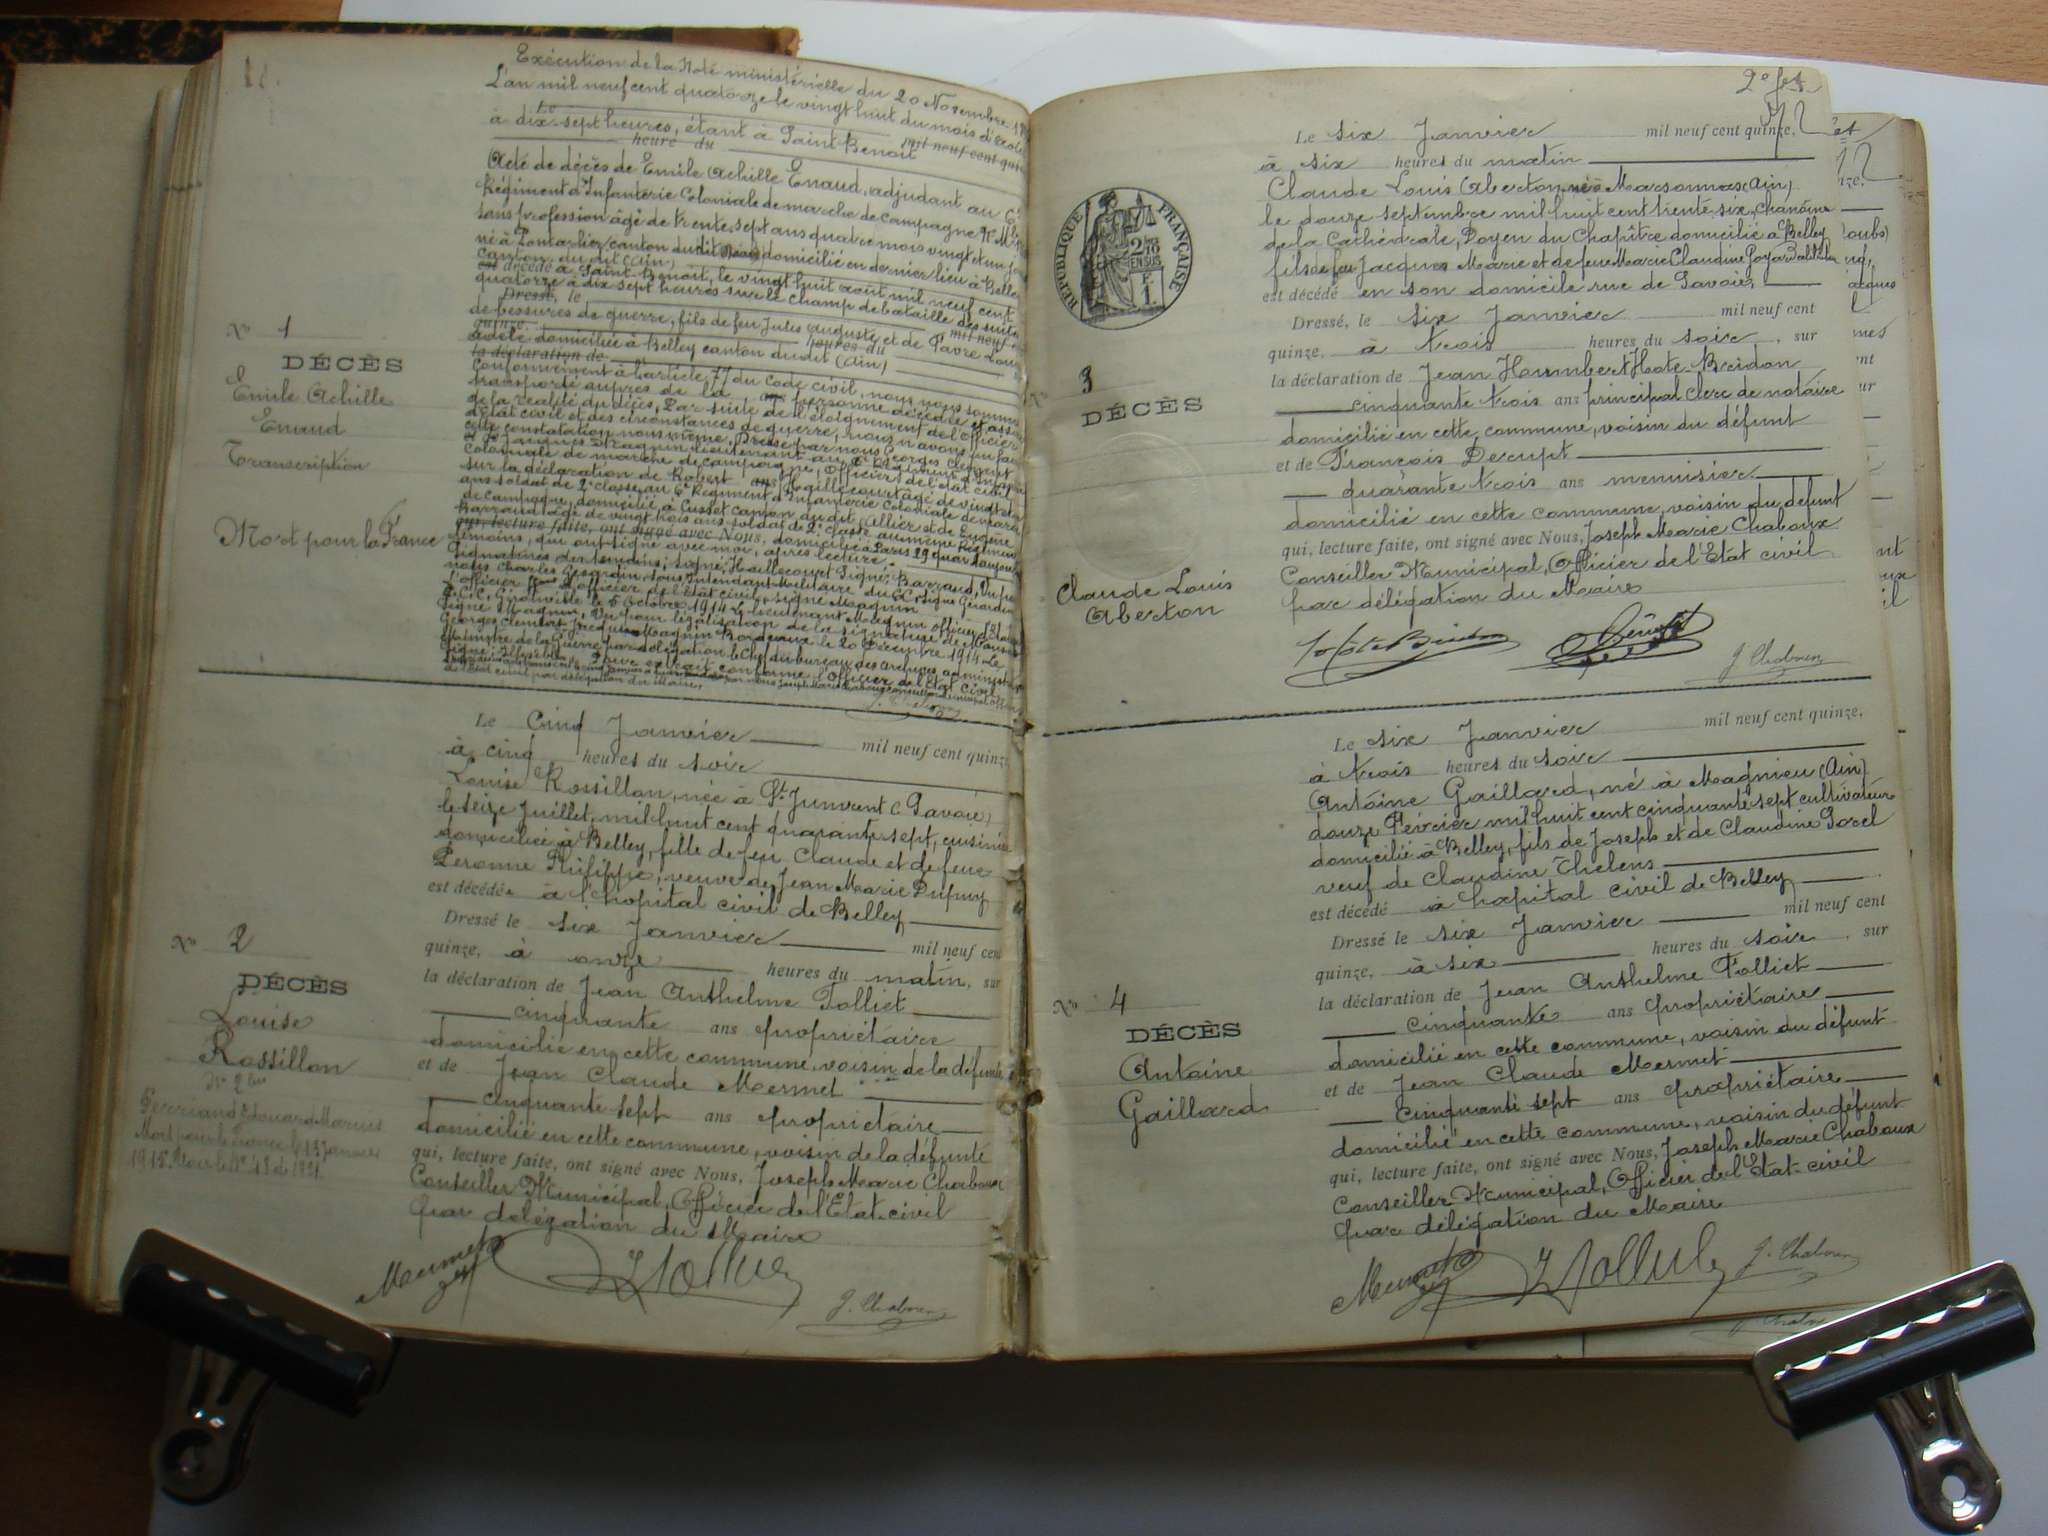 Exécution de la Note ministérielle du 20 Novembre
L'an mil neuf cent quatorze le vingt huit du mois d'
Le mil neuf cent
à dix-sept heures, étant à Saint Benoit
heure du
Acte de décès de Emile Achille Enaud, adjudant au 6e
Régiment d'Infanterie Coloniale de marche de campagne
sans profession âgé de trente sept ans quatre mois vingt et un
né à Pontarlier canton dudit (Doubs) domicilié en dernier lieu à Belley
canton du dit (Ain)
est décédé à Saint-Benoit, le vingt huit août mil neuf cent
quatorze à dix sept heures sur le champ de bataille des suites
Dressé, le mil neuf
de bessures de guerre, fils de feu Jules Auguste et de Favre
quinze, heures du
Adèle domiciliée à Belley canton dudit (Ain)
la déclaration de
Conformément à l'article 77 du Code civil, nous nous sommes
transporté auprès de la personne décédée et
de la réalité du décès, Par suite de l'éloignement de l'officier
d'état civil et des circonstances de guerre, nous n'avons pu
cette constatation nous même. Dressé par nous Georges Clément
Jacques Magnin lieutenant au 6e Régiment d'
Coloniale de marche de campagne, Officier de l'état civil
sur la déclaration de Robert Haillecourt âgé de vingt
ans soldat de 2e classe au 6e Régiment d'Infanterie Coloniale de
de campagne, domicilié à Cusset canton dudit, Allier et de Eugène
Barraud âgé de vingt trois ans soldat de 2e classe au même Régiment
qui, lecture faite, ont signé avec Nous, domicilié à Paris 29 quai
témoins, qui ont signé avec moi, après lecture.
Signatures des témoins: signé: Haillecourt Signé: Barraud,
nous Charles Girardin, sous Intendant Militaire du
l'officier de l'état civil, signé Magnin
le 5 Octobre 1914 Le lieutenant Magnin officier
Signé Magnin, Vu pour légalisation de la signature de Monsieur
Georges Clément Jacques Magnin Bordeaux le 20 Décembre 1914 Le
Ministre de la Guerre par délégation le Chef du bureau des archives
Pour extrait conforme l'Officier de l'état civil
de l'état civil par délégation du Maire,
No 1
DÉCÈS
Emile Achille
Enaud
Transcription
Mort pour la France
Le Cinq Janvier mil neuf cent quinze
à cinq heures du soir
Louise Rossillon, née à St Junvent (Savoie)
le seize Juillet, mil huit cent quarante sept, cuisinière
domiciliée à Belley, fille de feu Claude et de feue
Peronne Philippe, veuve de Jean Marie Dupuy
est décédée à l'hopital civil de Belley
Dressé le six Janvier mil neuf cent
quinze, à onze heures du matin, sur
la déclaration de Jean Anthelme Folliet
cinquante ans propriétaire
domicilié en cette commune, voisin de la défunte
et de Jean Claude Mermet
cinquante sept ans propriétaire
domicilié en cette commune, voisin de la défunte
qui, lecture faite, ont signé avec Nous, Joseph Marie Chaboux
Conseiller Municipal, Officier de l'Etat-civil
par délégation du Maire
Mermet
J. Chaboux
No 2
DÉCÈS
Louise
Rossillon
No 2 bis
Ferriand Edouard Marius
Mort pour la France le 13 Janvier
1915
2e fet
Le six Janvier mil neuf cent quinze,
à six heures du matin
Claude Louis Aberton, né à Marsonnas (Ain)
le douze septembre mil huit cent trente six, Chanoine
de la Cathédrale, Doyen du Chapître domicilié à Belley
fils de feu Jacques Marie et de feue Marie Claudine
est décédé en son domicile rue de Savoie,
Dressé, le six Janvier mil neuf cent
quinze, à trois heures du soir, sur
la déclaration de Jean Humbert Hote Bridon
cinquante trois ans principal Clerc de notaire
domicilié en cette commune, voisin du défunt
et de François Decrupt
quarante trois ans menuisier
domicilié en cette commune, voisin du défunt
qui, lecture faite, ont signé avec Nous, Joseph Marie Chaboux
Conseiller Municipal, Officier de l'Etat civil
par délégation du Maire
J. Chaboux
RÉPUBLIQUE FRANÇAISE
2/10 EN SUS
1 F
3
DÉCÈS
Claude Louis
Aberton
Le six Janvier mil neuf cent quinze,
à trois heures du soir
Antoine Gaillard, né à Magnieu (Ain)
douze Février mil huit cent cinquante sept cultivateur
domicilié à Belley, fils de Joseph et de Claudine Sorel
veuf de Claudine Thelens
est décédé à hopital civil de Belley
Dressé le six Janvier mil neuf cent
quinze, à six heures du soir, sur
la déclaration de Jean Anthelme Folliet
cinquante ans propriétaire
domicilié en cette commune, voisin du défunt
et de Jean Claude Mermet
cinquante sept ans propriétaire
domicilié en cette commune, voisin du défunt
qui, lecture faite, ont signé avec Nous, Joseph Marie Chaboux
Conseiller Municipal, Officier de l'Etat-civil
par délégation du Maire
Mermet
J. Chaboux
No 4
DÉCÈS
Antoine
Gaillard